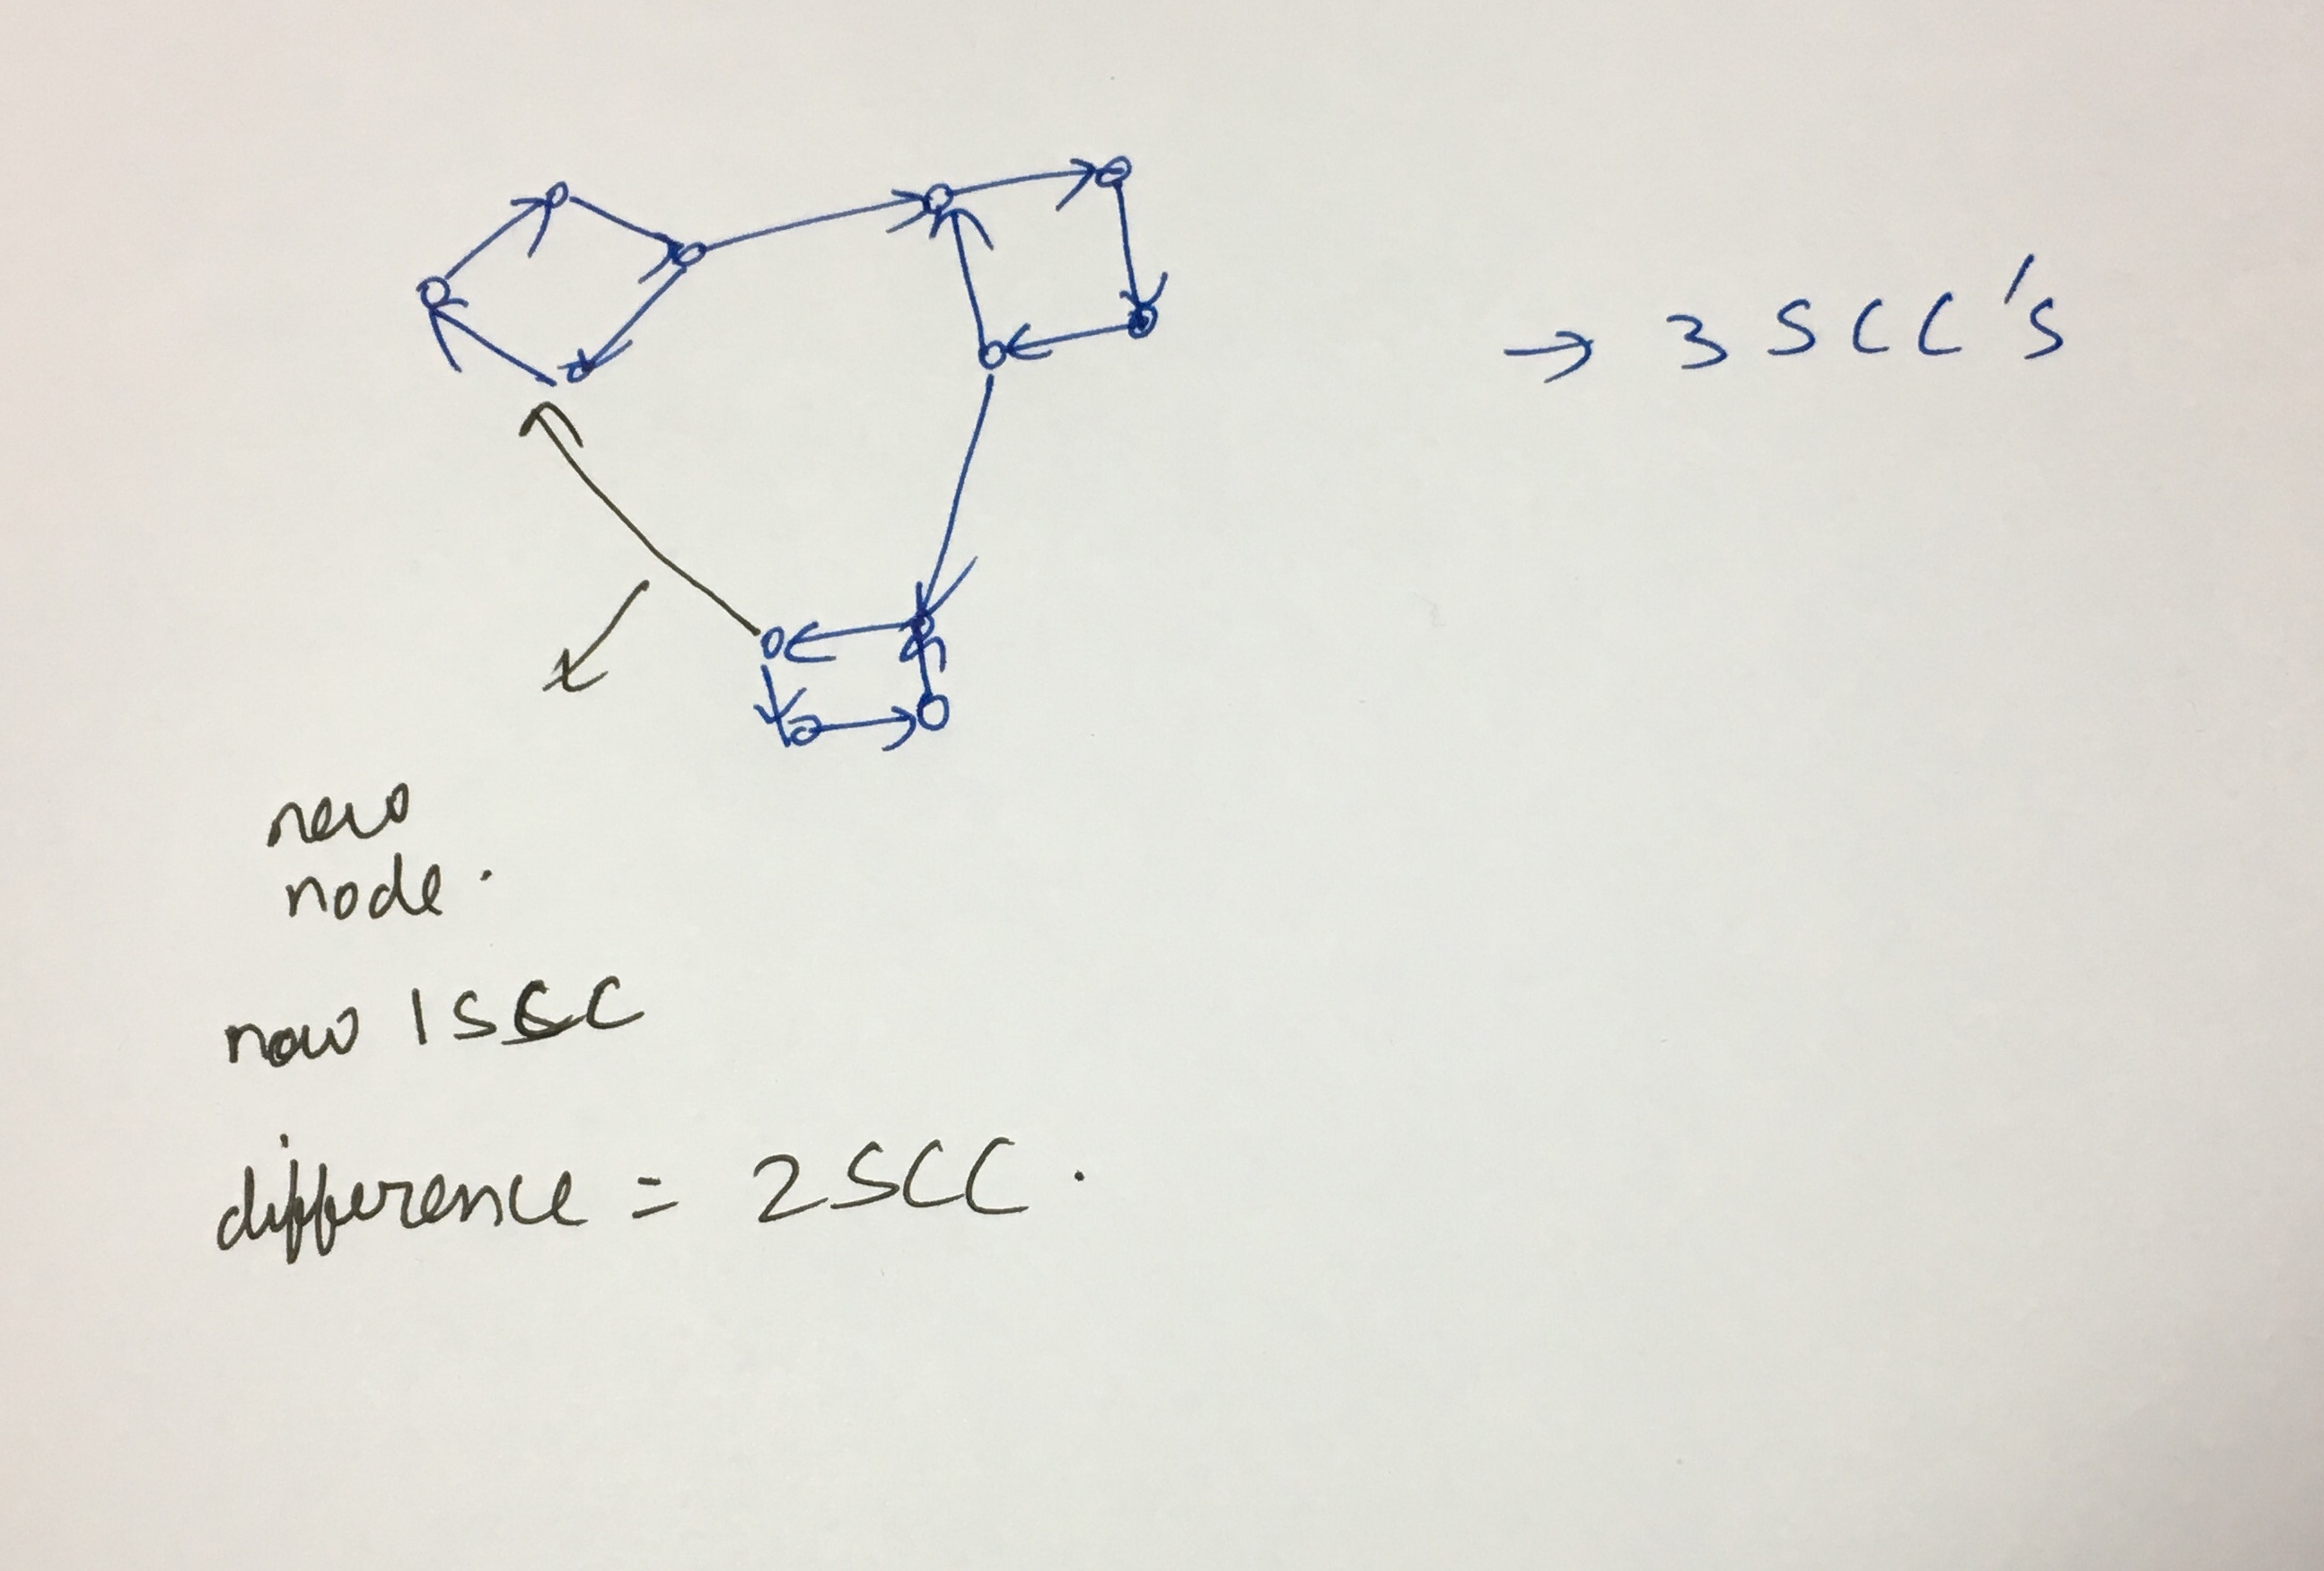 → 3 SCC's
new
node.
now 1 SCC
difference = 2 SCC.